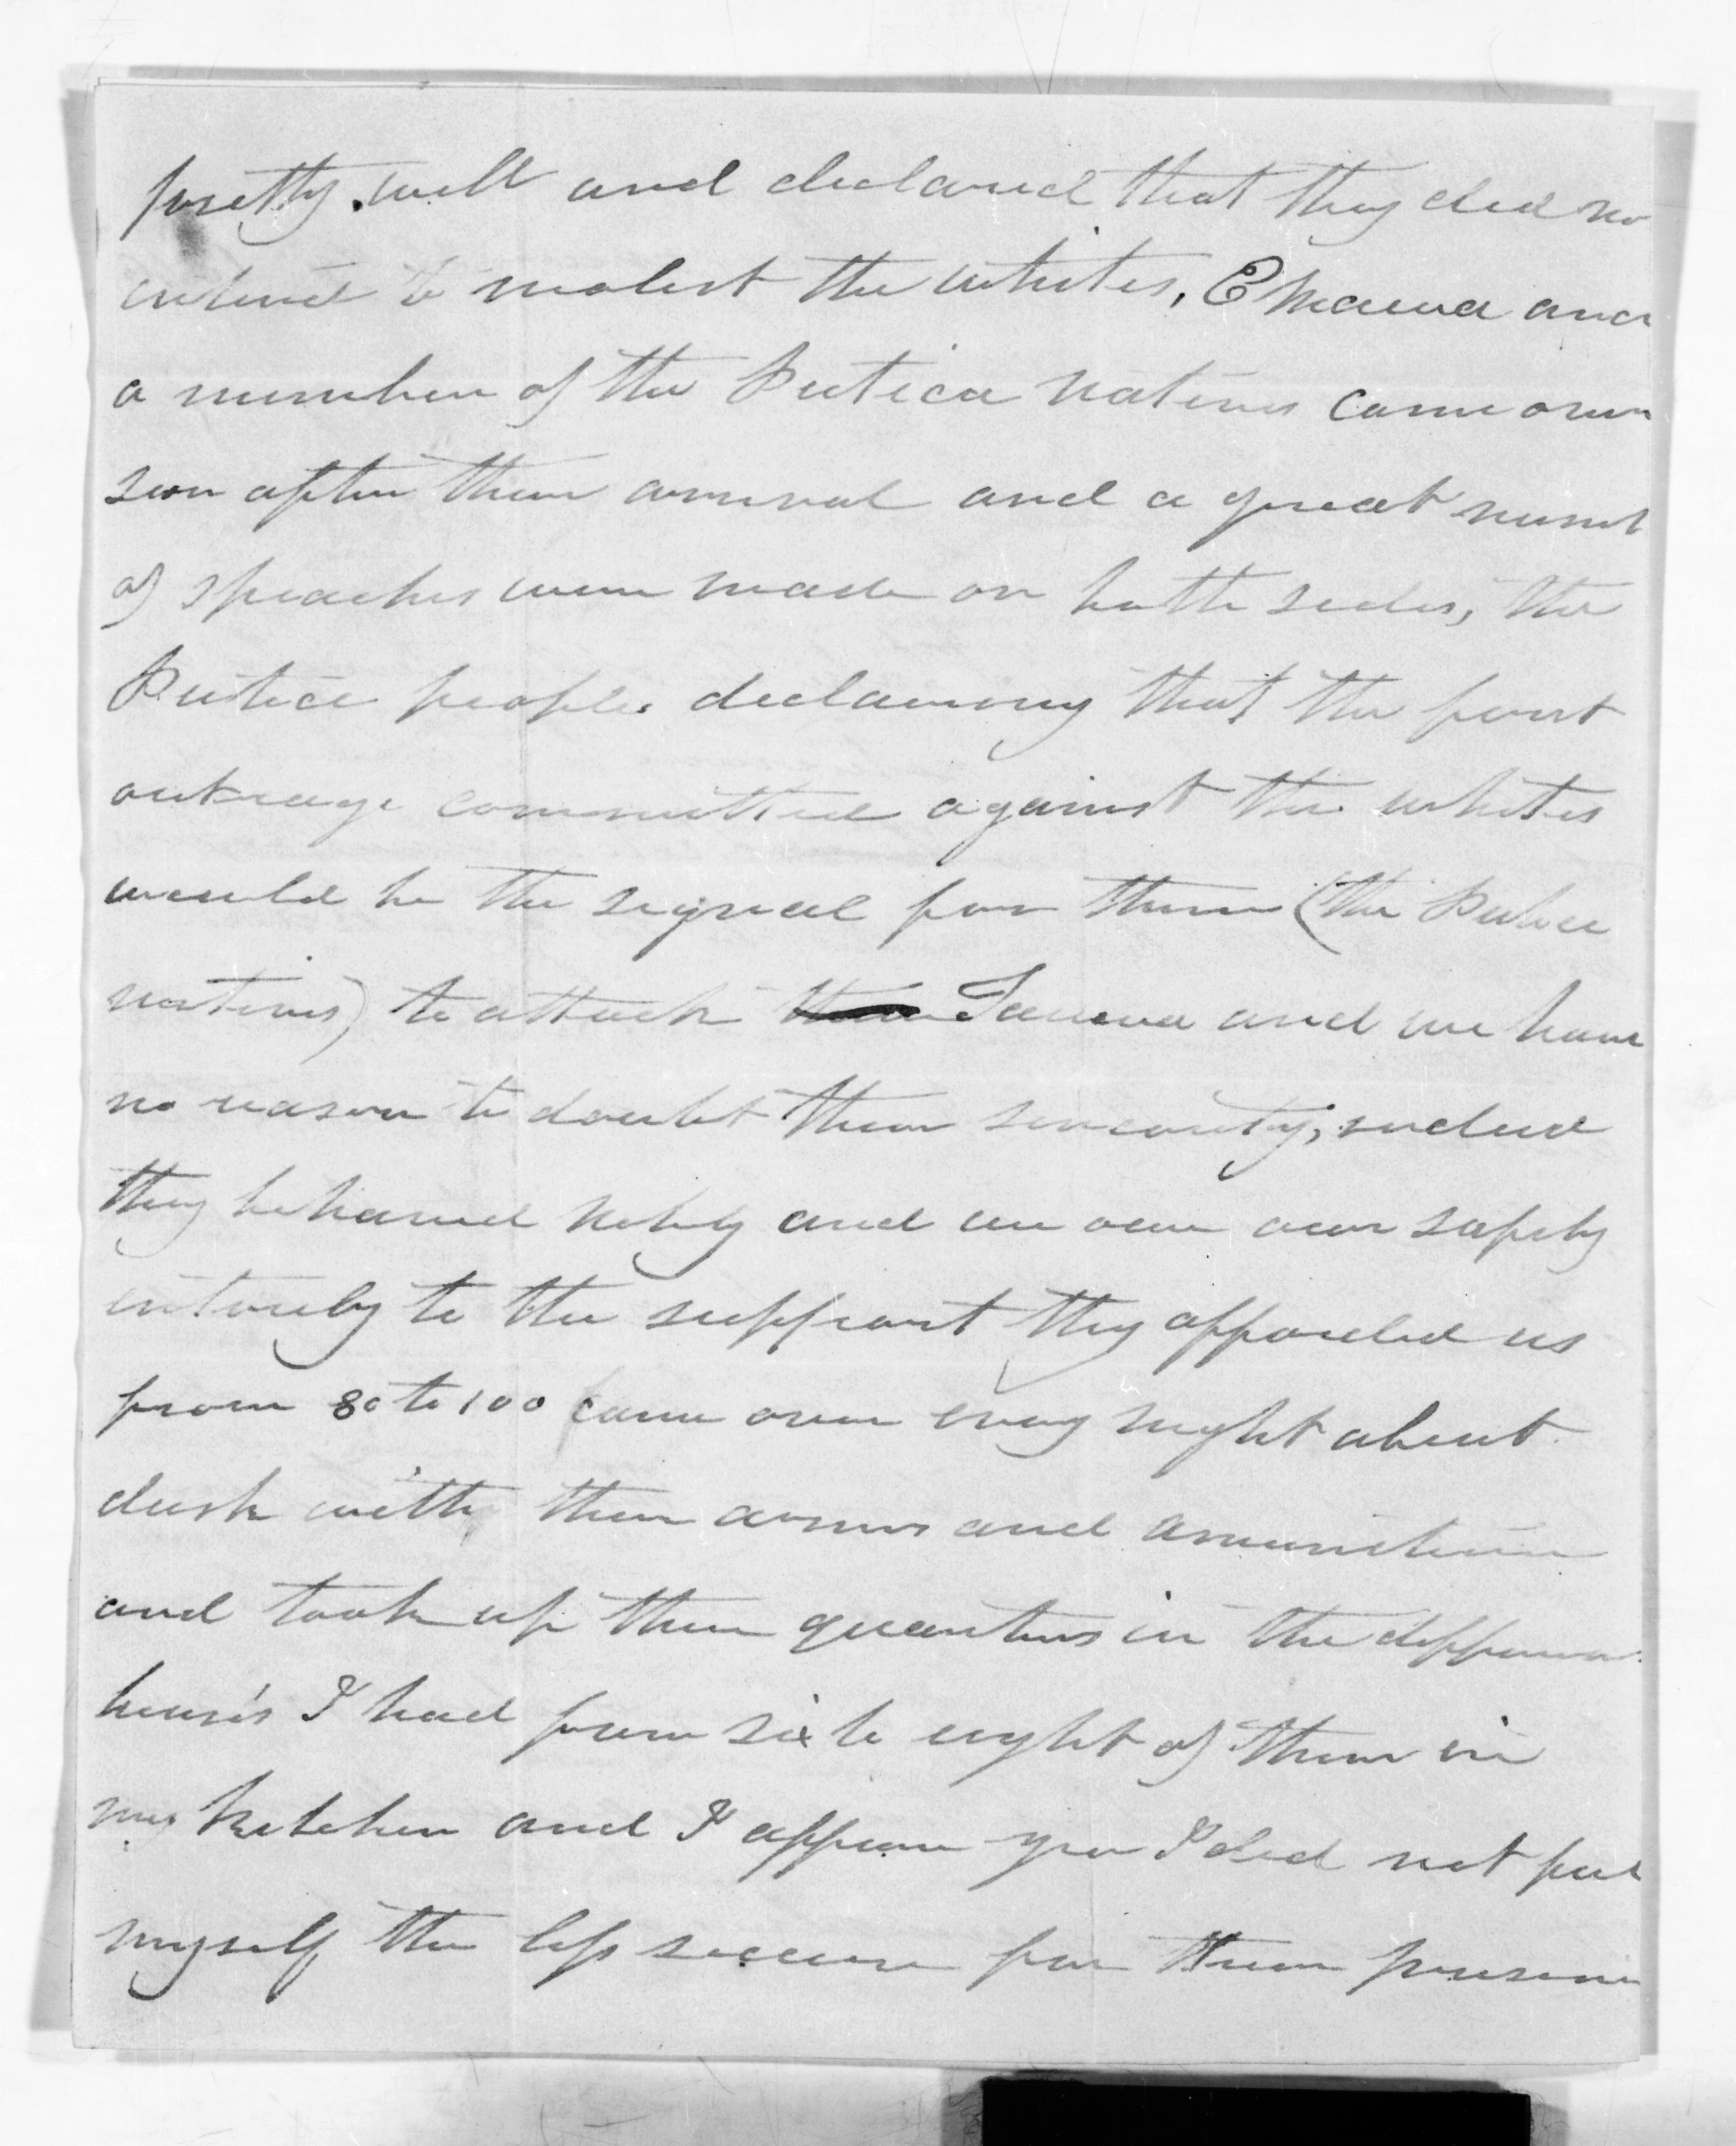 pretty well and declared that they did no
intend to molest the whites, E Mawa and
a number of the Peutica natives came over
soon after their arrival and a great numb
of speaches were made on both sides, the
Peutica people declaring that the first
outrage committed against the whites
would be the signal for them (the Peutica
natives) to attack Tanewa and we have
no reason to doubt their sincerity, indeed
they behaved nobly and we owe our safety
entirely to the support they afforded us
from 80 to 100 came over every night about
dusk with their arms and amunition
and took up their quarters in the differen
houses I had from six to eight of them in
my kitchen and I assure you I did not feel
myself the less secure for their presenc